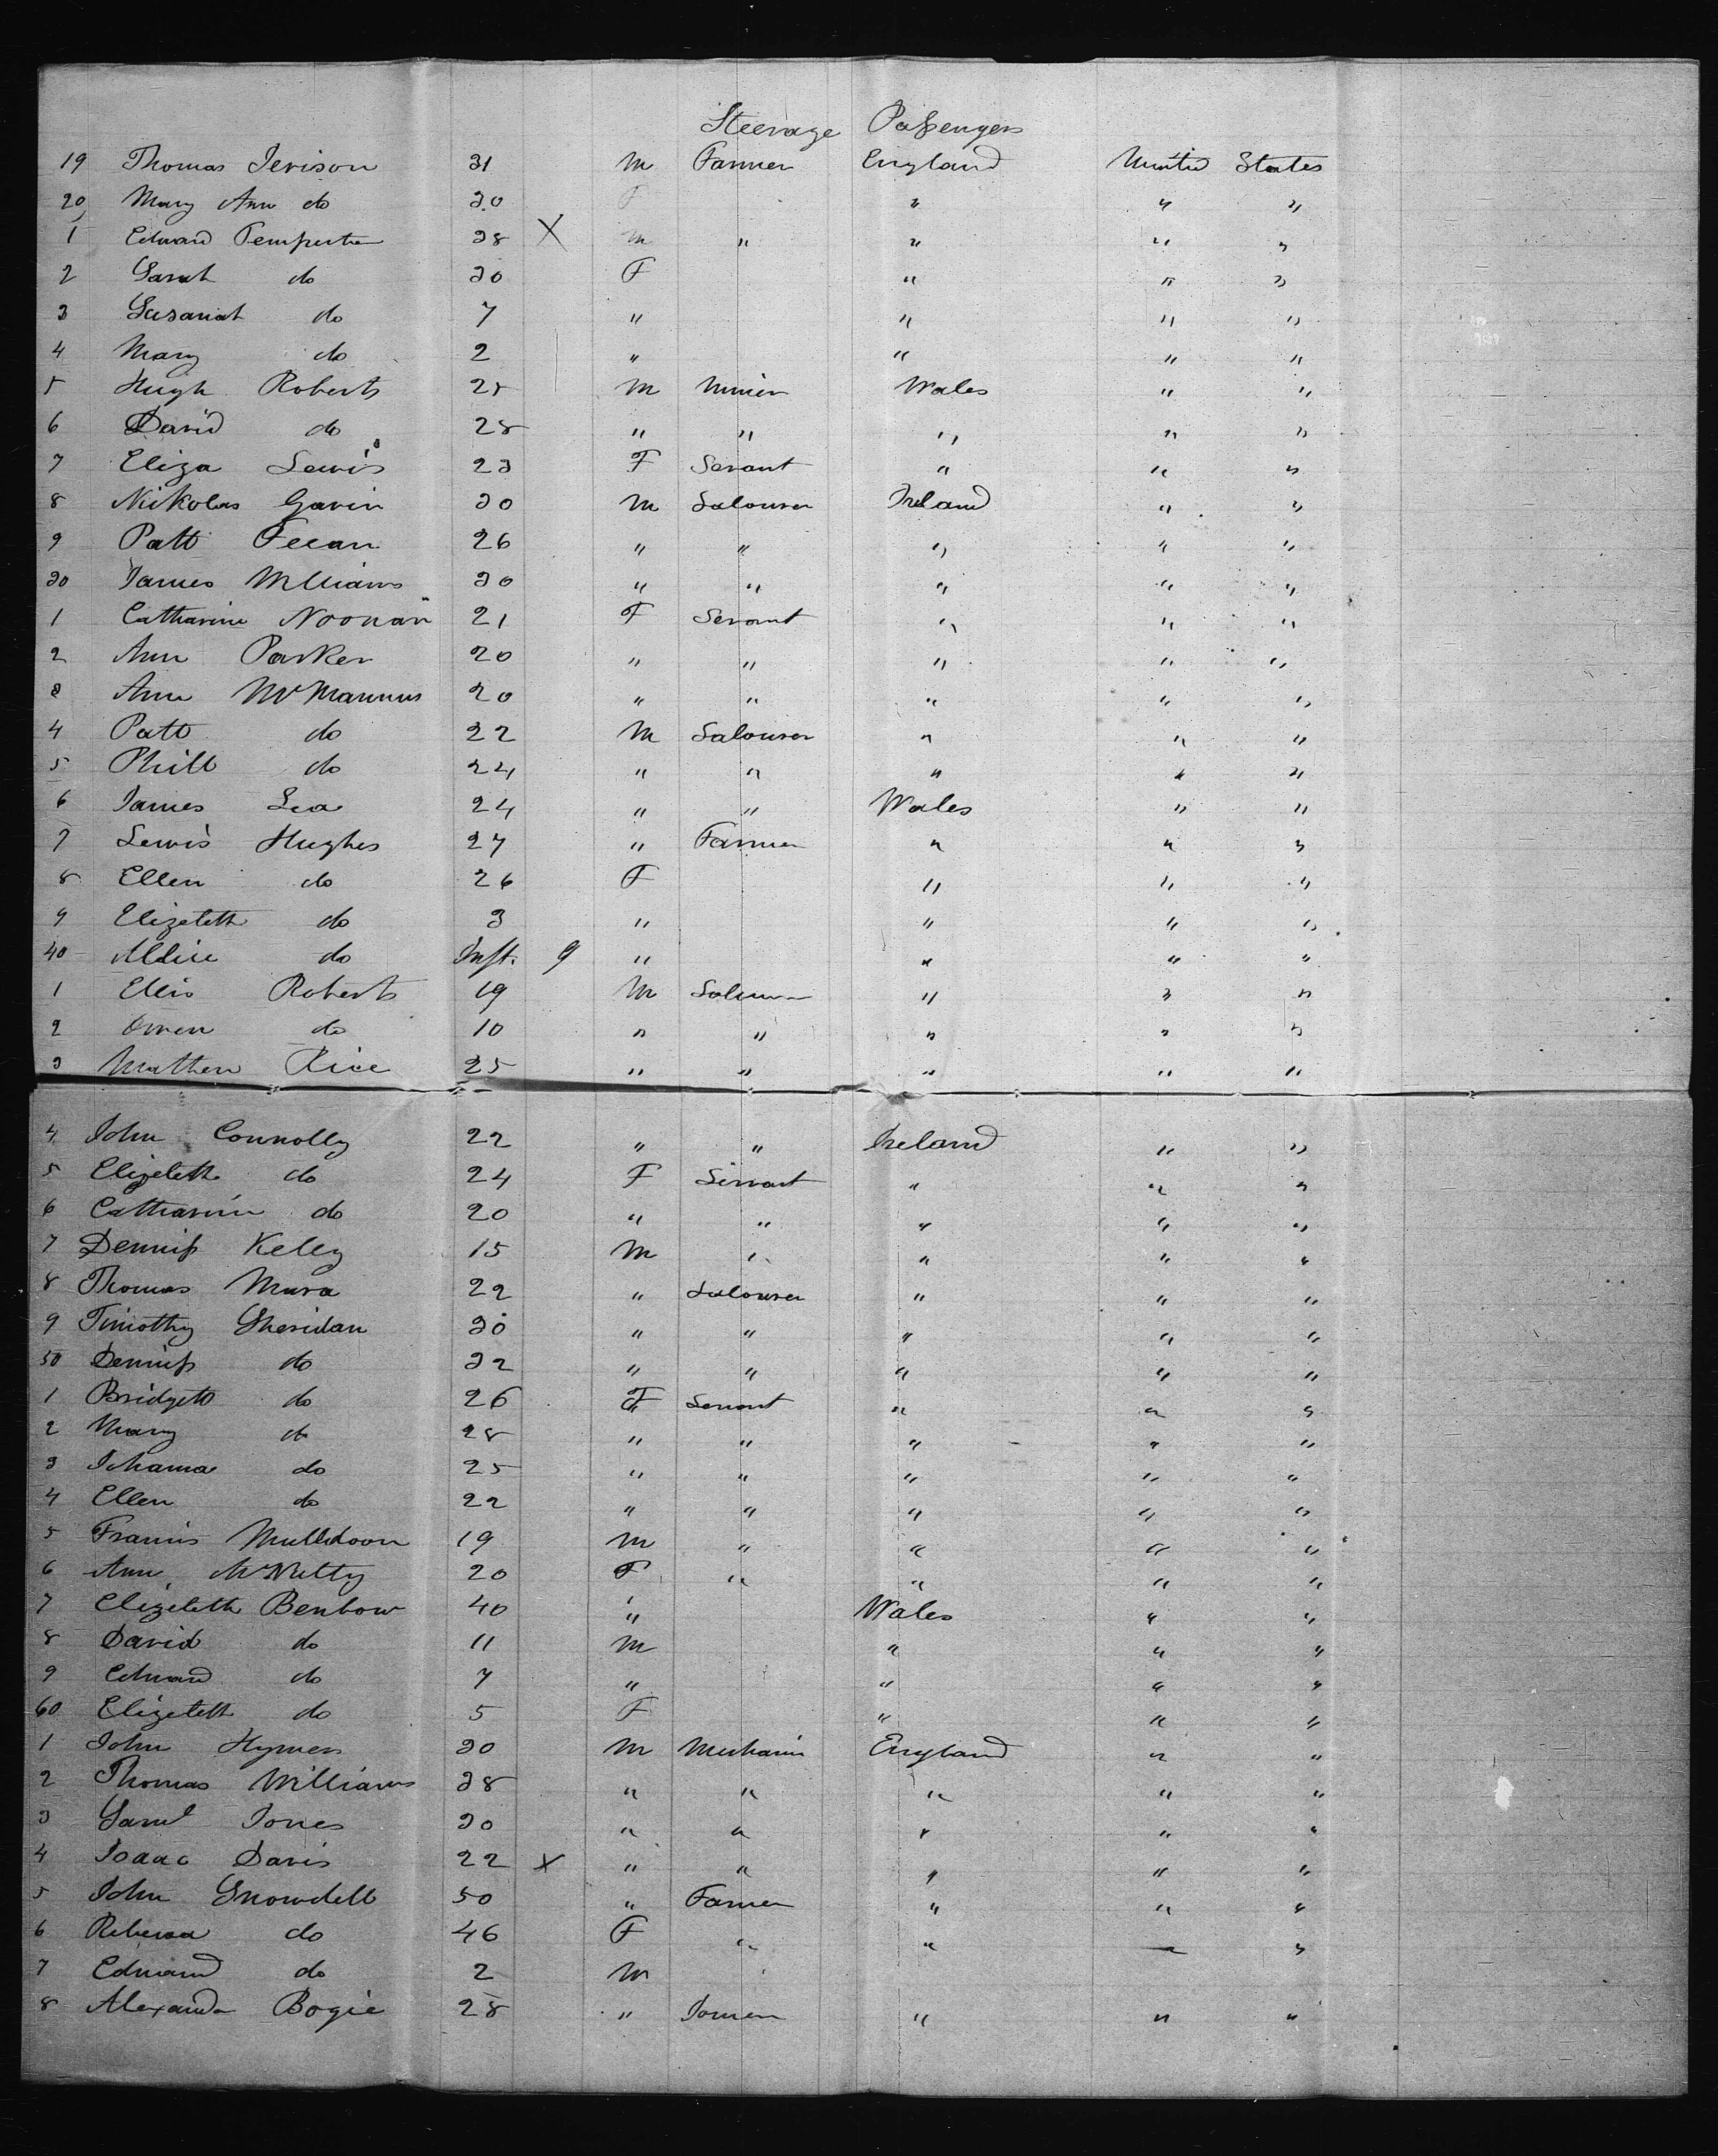 Steerage Passengers
19 Thomas Jevison 31 M Farmer England United States
20 Mary Ann do 30 F " " "
1 Edward Temperton 38 X M " " " "
2 Sarah do 30 F " " "
3 Susanah do 7 " " " "
4 Mary do 2 " " " "
5 Hugh Roberts 25 M Minier Wales " "
6 David do 28 " " " " "
7 Eliza Lewis 23 F Servant " " "
8 Nikolas Gavin 30 M Labourer Ireland " "
9 Patt Feean 26 " " " " "
30 James Williams 30 " " " " "
1 Catharine Noonan 21 F Servant " " "
2 Ann Parker 20 " " " " "
3 Ann McMannus 20 " " " " "
4 Patt do 22 M Labourer " " "
5 Phill do 24 " " " " "
6 James Lea 24 " " Wales " "
7 Lewis Hughes 27 " Farmer " " "
8 Ellen do 26 F " " "
9 Elizebeth do 3 " " " "
40 Allice do Inft. 9 " " " "
1 Ellis Roberts 19 M Labourer " " "
2 Owen do 10 " " " " "
3 Mathew Rice 25 " " " " "
4 John Connolly 22 " " Ireland " "
5 Elizebeth do 24 F Servant " " "
6 Catharine do 20 " " " " "
7 Denniss Kelly 15 M " " " "
8 Thomas Mara 22 " Labourer " " "
9 Timothy Sheridan 30 " " " " "
50 Denniss do 32 " " " " "
1 Bridgett do 26 F Servant " " "
2 Mary do 28 " " " " "
3 Johanna do 25 " " " " "
4 Ellen do 22 " " " " "
5 Francis Mulldoon 19 M " " " "
6 Ann McNulty 20 F " " " "
7 Elizebeth Benbow 40 " Wales " "
8 David do 11 M " " "
9 Edward do 7 " " " "
60 Elizebeth do 5 F " " "
1 John Hymers 30 M Mechanic England " "
2 Thomas Williams 38 " " " " "
3 Saml Jones 30 " " " " "
4 Isaac Davis 22 X " " " " "
5 John Snowdell 50 " Farmer " " "
6 Rebecca do 46 F " " " "
7 Edward do 2 M
8 Alexander Bogie 28 " " " "